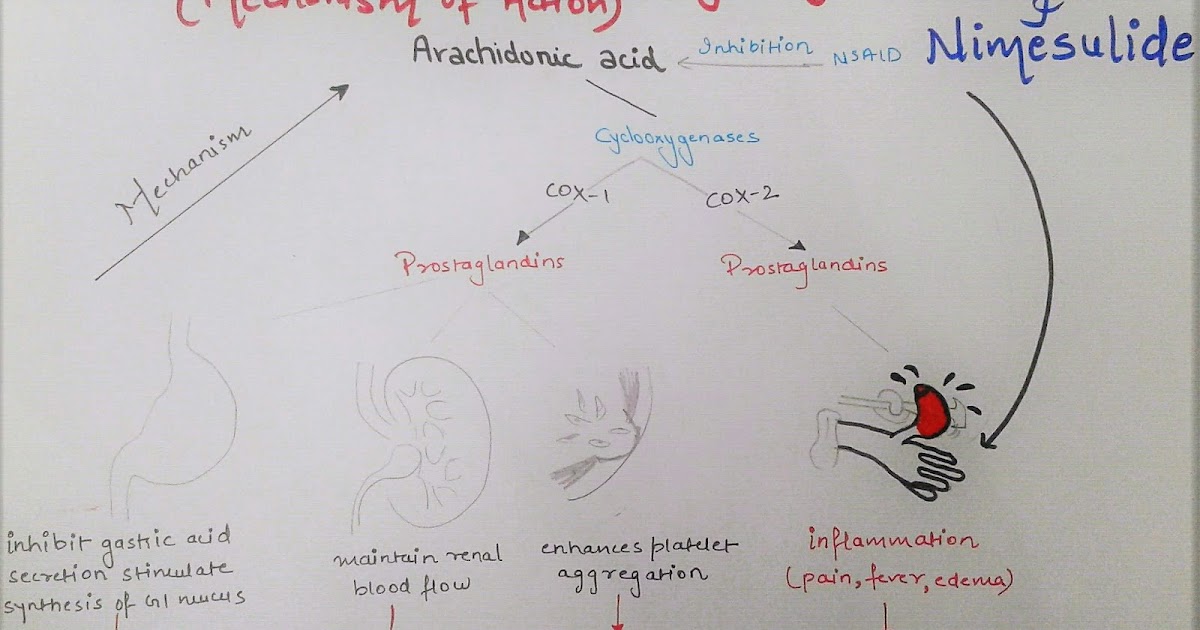 (Mechanism of Action)
Arachidonic acid
Inhibition
NSAID
Nimesulide
Mechanism
Cyclooxygenases
COX-1
COX-2
Prostaglandins
Prostaglandins
inhibit gastric acid
secretion stimulate
synthesis of GI mucus
maintain renal
blood flow
enhances platelet
aggregation
inflammation
(pain, fever, edema)